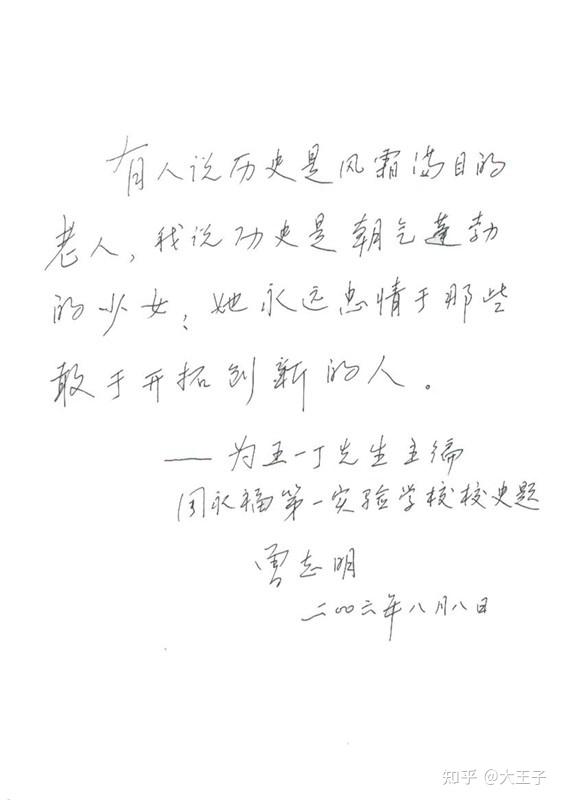 有人说历史是风霜满目的
老人,我说历史是朝气蓬勃
的少女,她永远忠情于那些
敢于开拓创新的人。
——为王一丁先生主编
周永福第一实验学校校史题
曾志明
二〇〇六年八月八日
知乎 @大王子